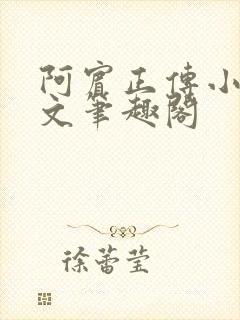 阿賓正傳小
文筆趣閣
徐蕾莹